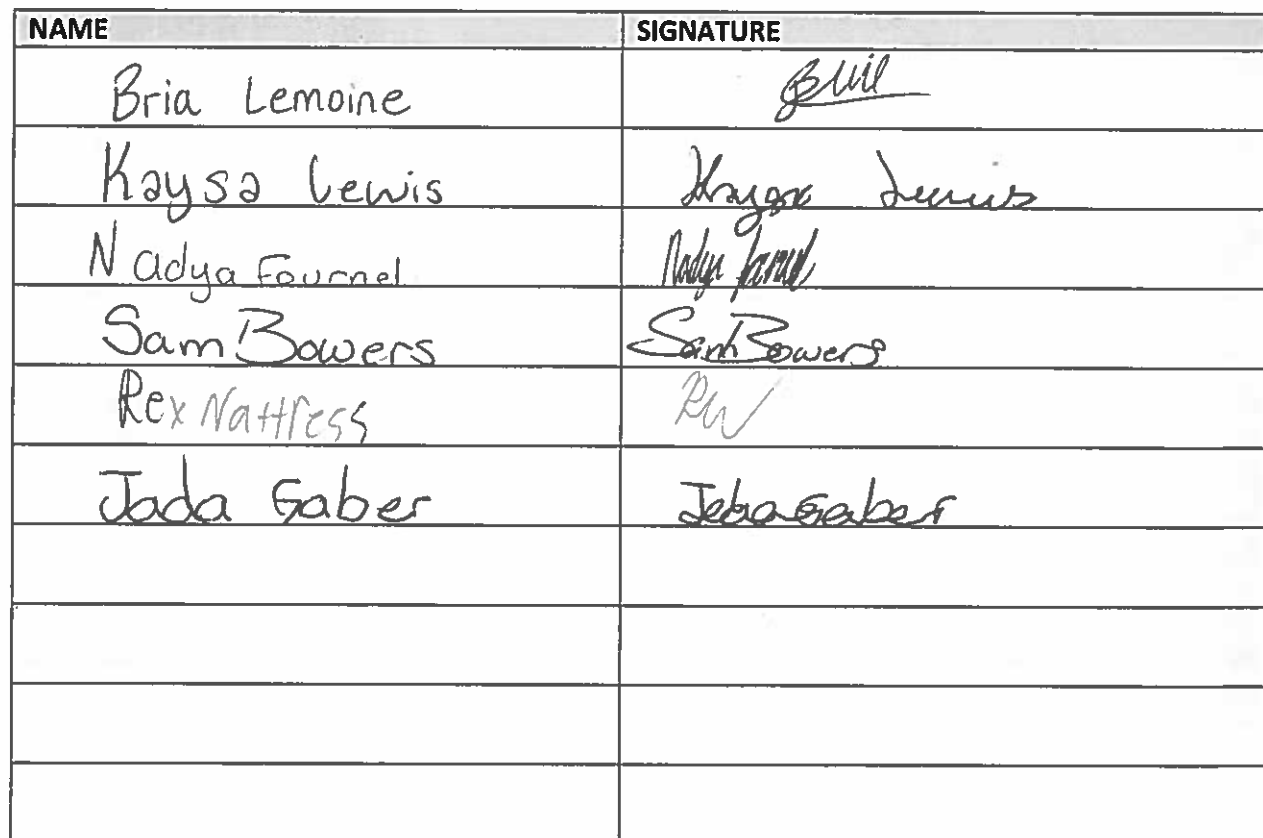 NAME SIGNATURE
Bria Lemoine
Kaysa Lewis Kaysa Lewis
Nadya Fournel Nadya Fournel
Sam Bowers Sam Bowers
Rex Nattress
Jada Gaber Gaber